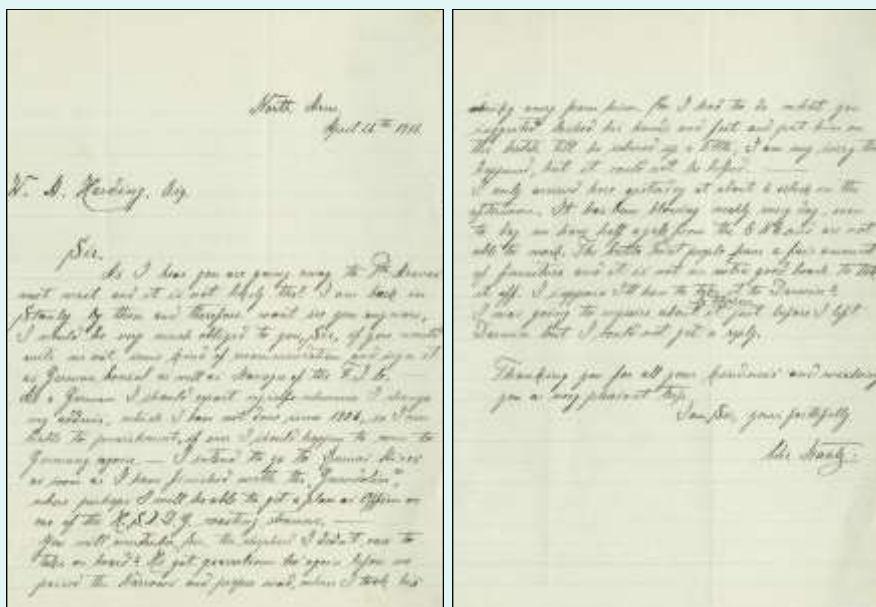 North Arm,
April 11th 1911.
W. A. Harding, Esq.
Sir,
As I hear you are going away to Pta Arenas
next week and it is not likely that I am back in
Stanley by then and therefore wont see you anymore,
I would be very much obliged to you, Sir, if you would
write me out some kind of recommendation and sign it
as German Consul as well as Manager of the F.I.C.
As a German I should report myself whenever I change
my address, which I have not done since 1906, so I am
liable to punishment, if ever I should happen to come to
Germany again. — I intend to go to Buenos Aires
as soon as I have finished with the
where perhaps I will be able to get a place as Officer on
one of the H.S.D.G. steamers. —
You will remember, Sir, the I didn't care to
take on board? He got again before we
passed the Narrows and properly mad, when I took his
away from him. So I had to do what you
suggested, lashed his hands and feet and put him on
the hatch till he sobered up a little. I am very sorry this
happened, but it could not be helped. —
I only arrived here yesterday at about 4 o'clock in the
afternoon. It has been blowing really every day, even
to day we have half a gale from the and are not
able to work. The people have a fair amount
of furniture and it is not an extra good beach to take
it off. I suppose I'll have to take it to Darwin?
I was going to enquire about it just before I left
Darwin but I could not get a reply.
Thanking you for all your kindness and wishing
you a very pleasant trip,
I am, Sir, yours faithfully